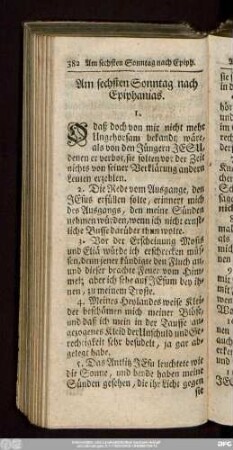 382 Am sechsten Sonntag nach Epiph.
Am sechsten Sonntag nach
Epiphanias.
1.
O daß doch von mir nicht mehr
Ungehorsam bekandt wäre,
als von den Jüngern JESU,
denen er verbot, sie solten vor der Zeit
nichts von seiner Verklärung andern
Leuten erzehlen.
2. Die Rede vom Ausgange, den
JEsus erfüllen solte, erinnert mich
des Ausgangs, den meine Sünden
nehmen würden, wenn ich nicht ernst-
liche Busse darüber thun wolte.
3. Vor der Erscheinung Mosis
und Eliä würde ich erschrecken müs-
sen, denn jener kündigte den Fluch an,
und dieser brachte Feuer vom Him-
mel; aber ich sehe auf JEsum bey ih-
nen, zu meinem Troste.
4. Meines Heylandes weise Klei-
der beschämen mich meiner Blöße,
und daß ich mein in der Tauffe an-
gezogenes Kleid der Unschuld und Ge-
rechtigkeit sehr besudelt, ja gar ab-
gelegt habe.
5. Das Antlitz JEsu leuchtete wie
die Sonne, und beyde haben meine
Sünden gesehen, die ihr Licht gegen
sie